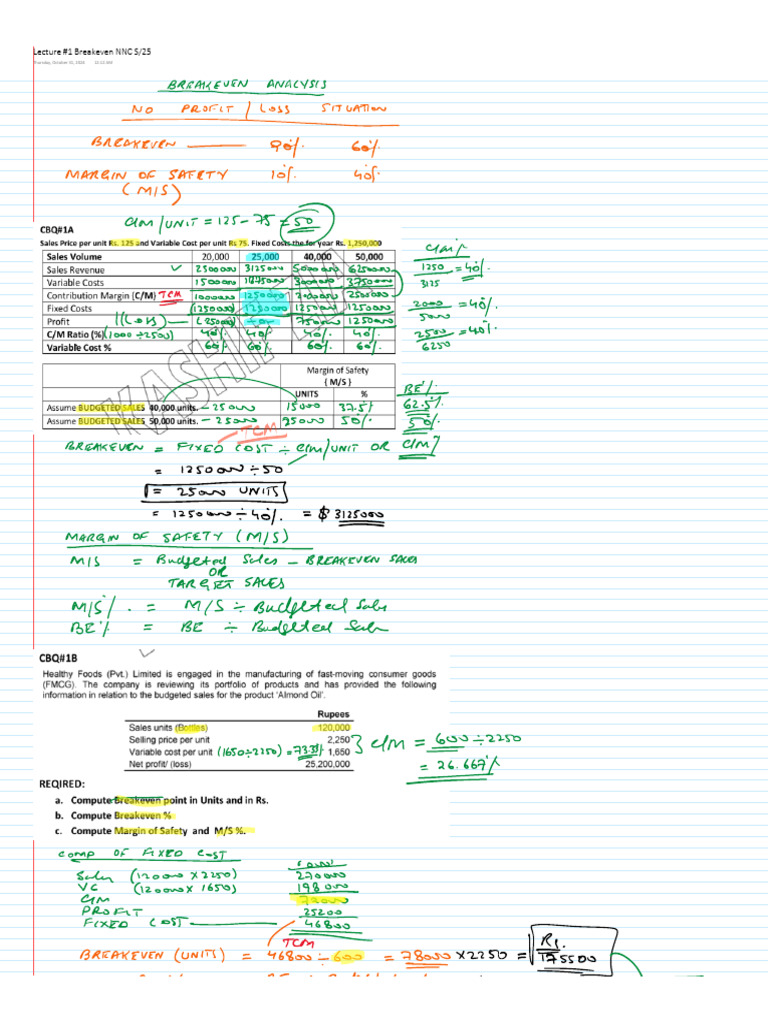 Lecture #1 Breakeven NNC S/25
BREAKEVEN ANALYSIS
NO PROFIT / LOSS SITUATION
BREAKEVEN — 90% 60%
MARGIN OF SAFETY 10% 40%
(M/S)
C/M / UNIT = 125 - 75 = 50
CBQ#1A
Sales Price per unit Rs. 125 and Variable Cost per unit Rs 75. Fixed Costs the for year Rs. 1,250,000
Sales Volume 20,000 25,000 40,000 50,000
Sales Revenue 2500000 3125000 5000000 6250000
Variable Costs 1500000 1875000 3000000 3750000
Contribution Margin (C/M) TCM 1000000 1250000 2000000 2500000
Fixed Costs (1250000) 1250000 1250000 1250000
Profit / (Loss) (250000) -0- 750000 1250000
C/M Ratio (%) (1000 ÷ 2500) 40% 40% 40% 40%
Variable Cost % 60% 60% 60% 60%
C/M %
1250 / 3125 = 40%
2000 / 5000 = 40%
2500 / 6250 = 40%
KASHIF
Margin of Safety
( M/S )
UNITS %
Assume BUDGETED SALES 40,000 units. - 25000 15000 37.5%
Assume BUDGETED SALES 50,000 units. - 25000 25000 50%
BE %
62.5%
50%
TCM
BREAKEVEN = FIXED COST ÷ C/M/UNIT OR C/M %
= 1250000 ÷ 50
= 25000 UNITS
= 1250000 ÷ 40% = $ 3125000
MARGIN OF SAFETY (M/S)
M/S = Budgeted Sales - BREAKEVEN SALES
OR
TARGET SALES
M/S % = M/S ÷ Budgeted Sales
BE % = BE ÷ Budgeted Sales
CBQ#1B
Healthy Foods (Pvt.) Limited is engaged in the manufacturing of fast-moving consumer goods
(FMCG). The company is reviewing its portfolio of products and has provided the following
information in relation to the budgeted sales for the product 'Almond Oil'.
Rupees
Sales units (Bottles) 120,000
Selling price per unit 2,250
Variable cost per unit (1650 ÷ 2250) = 73.33% 1,650
Net profit/ (loss) 25,200,000
C/M = 600 ÷ 2250
= 26.667%
REQIRED:
a. Compute Breakeven point in Units and in Rs.
b. Compute Breakeven %
c. Compute Margin of Safety and M/S %.
COMP OF FIXED COST
Sales (120000 X 2250) 270000
VC (120000 X 1650) 198000
C/M 72000
PROFIT 25200
FIXED COST 46800
TCM
BREAKEVEN (UNITS) = 46800 ÷ 600 = 78000 X 2250 = Rs. 175500